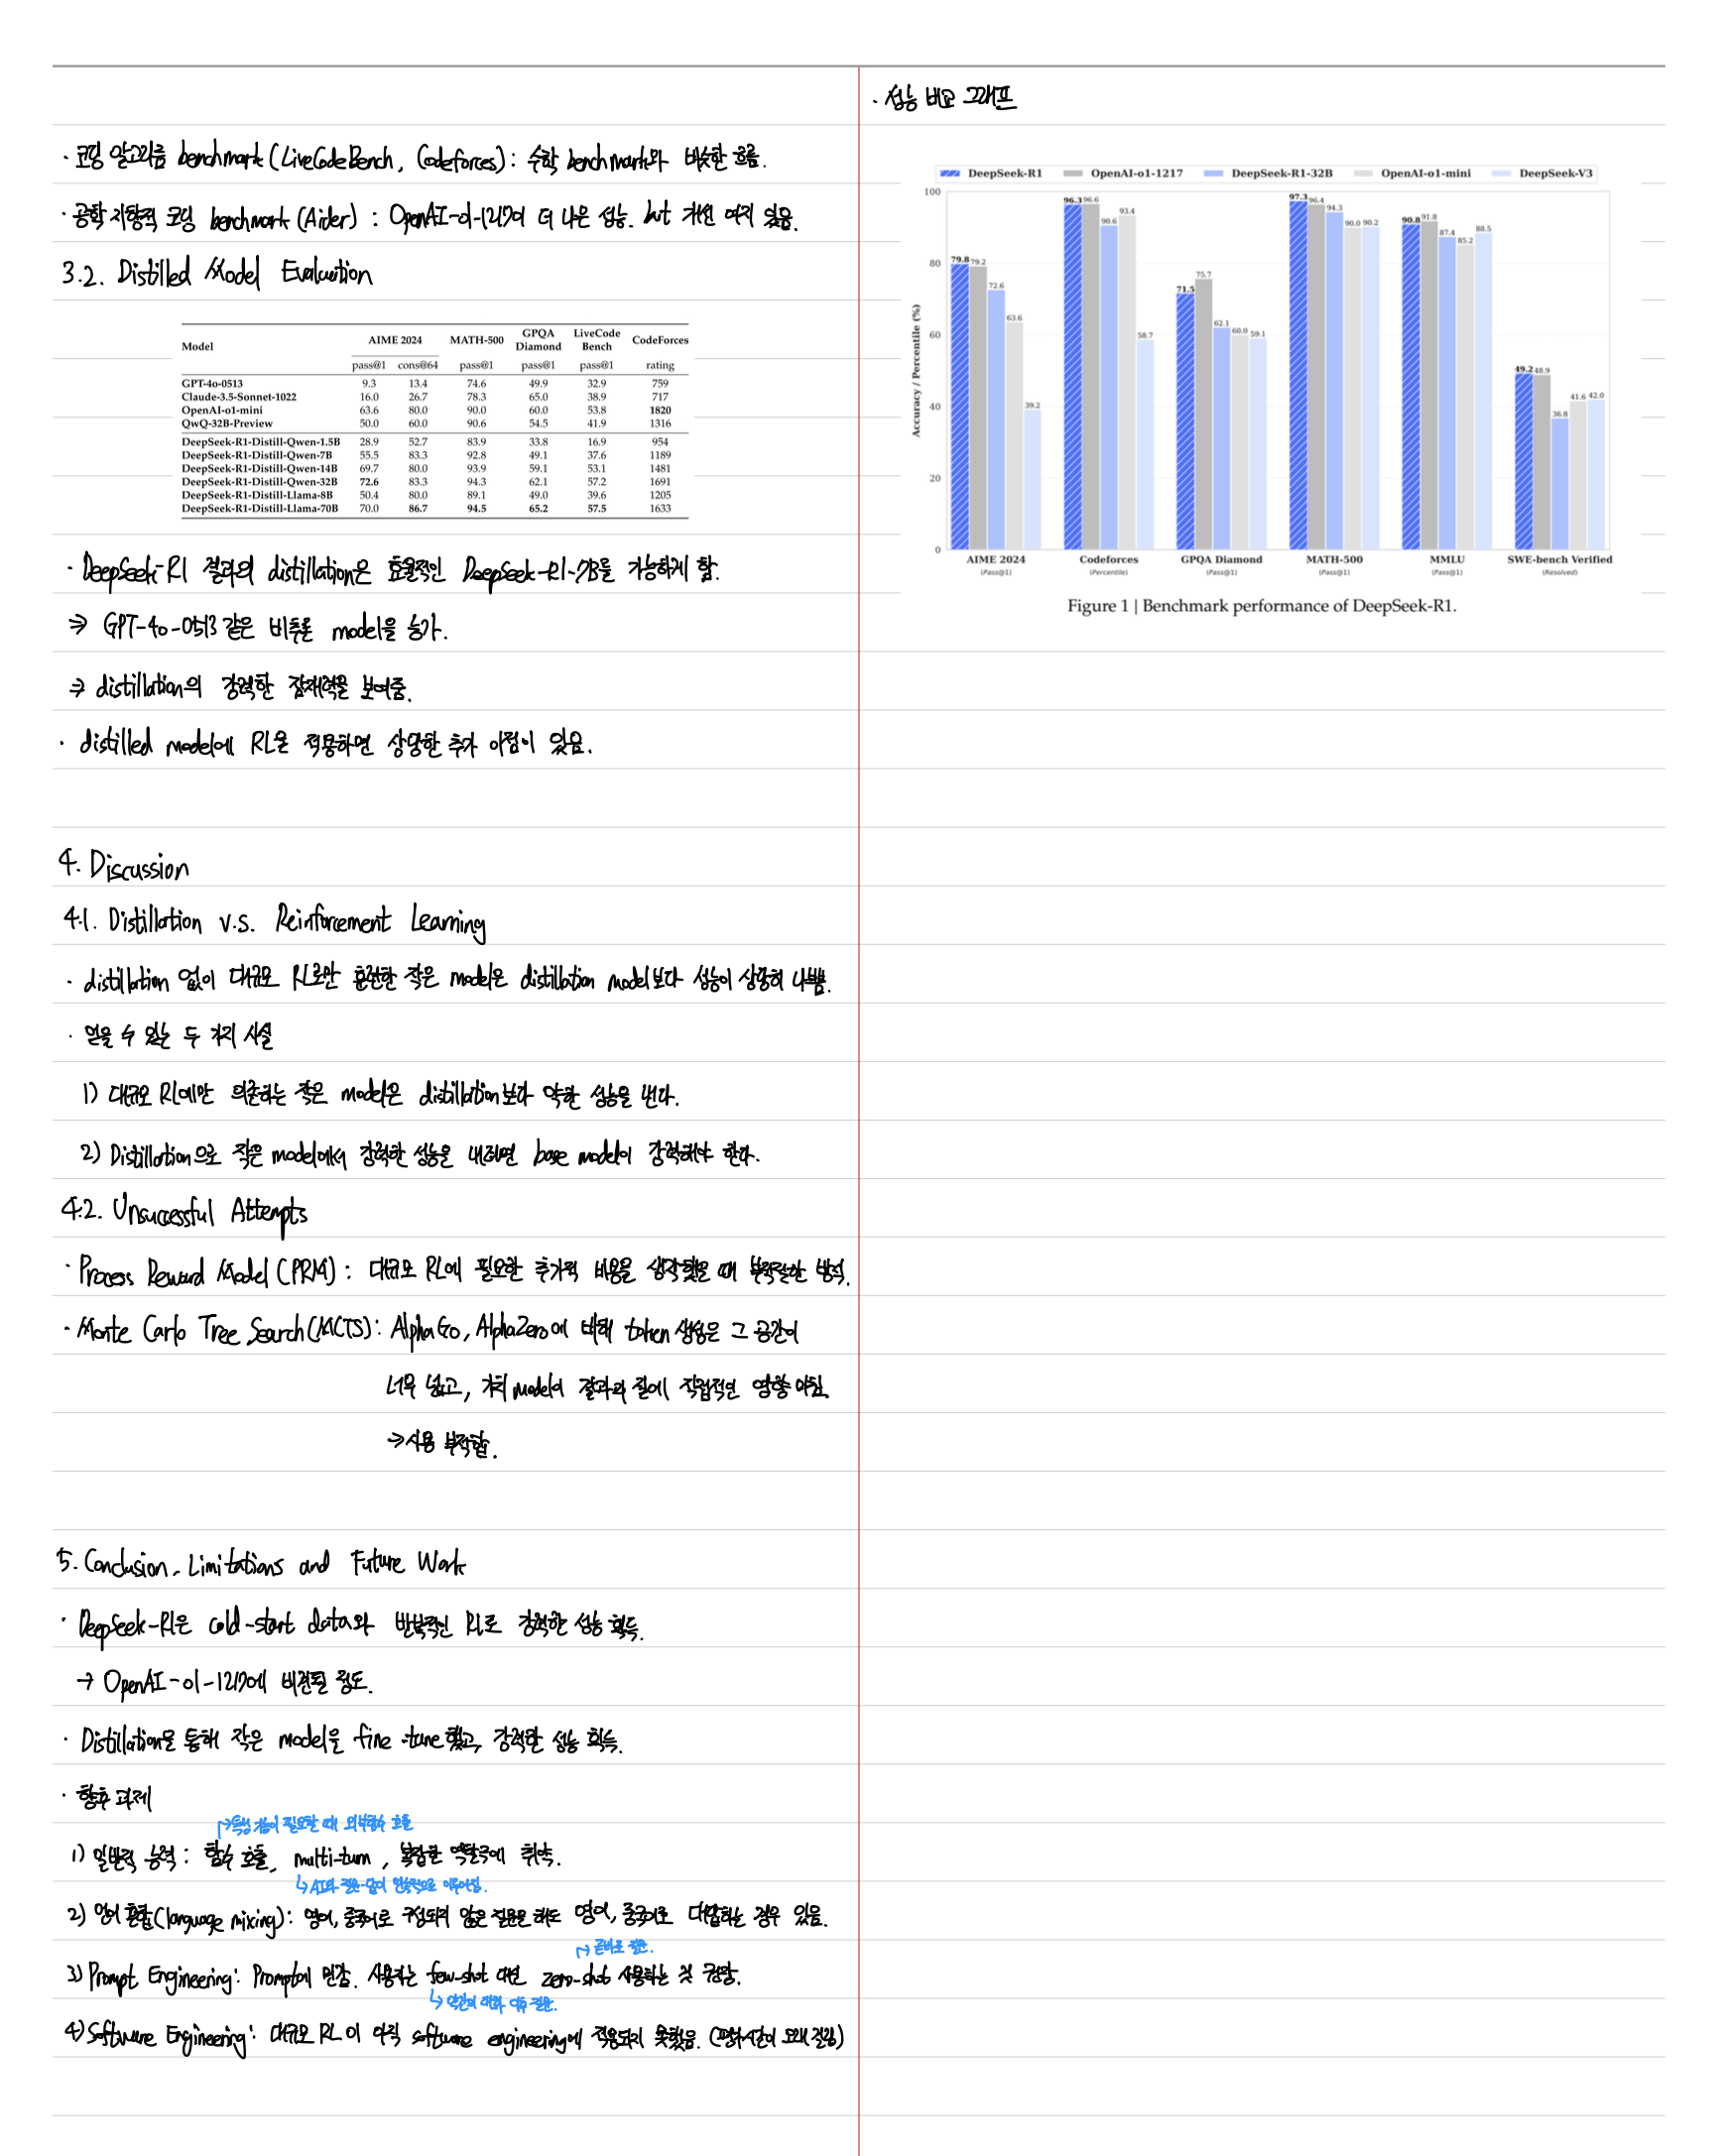 · 코딩 알고리즘 benchmark (LiveCodeBench, Codeforces) : 수학 benchmark와 비슷한 흐름.
· 공학 지향적 코딩 benchmark (Aider) : OpenAI-o1-1217이 더 나은 성능. but 개선 여지 있음.
3.2. Distilled Model Evaluation
Model AIME 2024 MATH-500 GPQA Diamond LiveCode Bench CodeForces
pass@1 cons@64 pass@1 pass@1 pass@1 rating
GPT-4o-0513 9.3 13.4 74.6 49.9 32.9 759
Claude-3.5-Sonnet-1022 16.0 26.7 78.3 65.0 38.9 717
OpenAI-o1-mini 63.6 80.0 90.0 60.0 53.8 1820
QwQ-32B-Preview 50.0 60.0 90.6 54.5 41.9 1316
DeepSeek-R1-Distill-Qwen-1.5B 28.9 52.7 83.9 33.8 16.9 954
DeepSeek-R1-Distill-Qwen-7B 55.5 83.3 92.8 49.1 37.6 1189
DeepSeek-R1-Distill-Qwen-14B 69.7 80.0 93.9 59.1 53.1 1481
DeepSeek-R1-Distill-Qwen-32B 72.6 83.3 94.3 62.1 57.2 1691
DeepSeek-R1-Distill-Llama-8B 50.4 80.0 89.1 49.0 39.6 1205
DeepSeek-R1-Distill-Llama-70B 70.0 86.7 94.5 65.2 57.5 1633
· DeepSeek-R1 결과의 distillation은 효율적인 DeepSeek-R1-7B를 가능하게 함.
⇒ GPT-4o-0513 같은 비추론 model을 능가.
⇒ distillation의 강력한 잠재력을 보여줌.
· distilled model에 RL을 적용하면 상당한 추가 이점이 있음.
4. Discussion
4.1. Distillation v.s. Reinforcement Learning
· distillation 없이 대규모 RL로만 훈련한 작은 model은 distillation model보다 성능이 상당히 나쁨.
· 얻을 수 있는 두 가지 사실
1) 대규모 RL에만 의존하는 작은 model은 distillation보다 약한 성능을 낸다.
2) Distillation으로 작은 model에서 강력한 성능을 내려면 base model이 강력해야 한다.
4.2. Unsuccessful Attempts
· Process Reward Model (PRM) : 대규모 RL에 필요한 추가적 비용을 생각했을 때 부적절한 방식.
· Monte Carlo Tree Search (MCTS) : AlphaGo, AlphaZero에 비해 token 생성은 그 공간이
너무 넓고, 가치 model이 결과의 질에 직접적인 영향 미침.
⇒ 사용 부적합.
5. Conclusion, Limitations and Future Work
· DeepSeek-R1은 cold-start data와 반복적인 RL로 강력한 성능 획득.
→ OpenAI-o1-1217에 비견될 정도.
· Distillation을 통해 작은 model을 fine-tune했고, 강력한 성능 획득.
· 향후 과제
↱ 특정 기능이 필요할 때 외부함수 호출
1) 일반적 능력 : 함수 호출, multi-turn, 복잡한 역할극에 취약.
↳ AI와 질문-답이 연속적으로 이루어짐.
2) 언어 혼합(language mixing) : 영어, 중국어로 구성되지 않은 질문을 해도 영어, 중국어로 대답하는 경우 있음.
↱ 곧바로 질문.
3) Prompt Engineering : Prompt에 민감. 사용자는 few-shot 대신 zero-shot 사용하는 것 권장.
↳ 약간의 대화 이후 질문.
4) Software Engineering : 대규모 RL이 아직 software engineering에 적용되지 못했음. (평가시간이 오래 걸림)
· 성능 비교 그래프
DeepSeek-R1 OpenAI-o1-1217 DeepSeek-R1-32B OpenAI-o1-mini DeepSeek-V3
Accuracy / Percentile (%)
100
80
60
40
20
0
79.8 79.2 72.6 63.6 39.2
96.3 96.6 90.6 93.4 58.7
71.5 75.7 62.1 60.0 59.1
97.3 96.4 94.3 90.0 90.2
90.8 91.8 87.4 85.2 88.5
49.2 48.9 36.8 41.6 42.0
AIME 2024 Codeforces GPQA Diamond MATH-500 MMLU SWE-bench Verified
(Pass@1) (Percentile) (Pass@1) (Pass@1) (Pass@1) (Resolved)
Figure 1 | Benchmark performance of DeepSeek-R1.